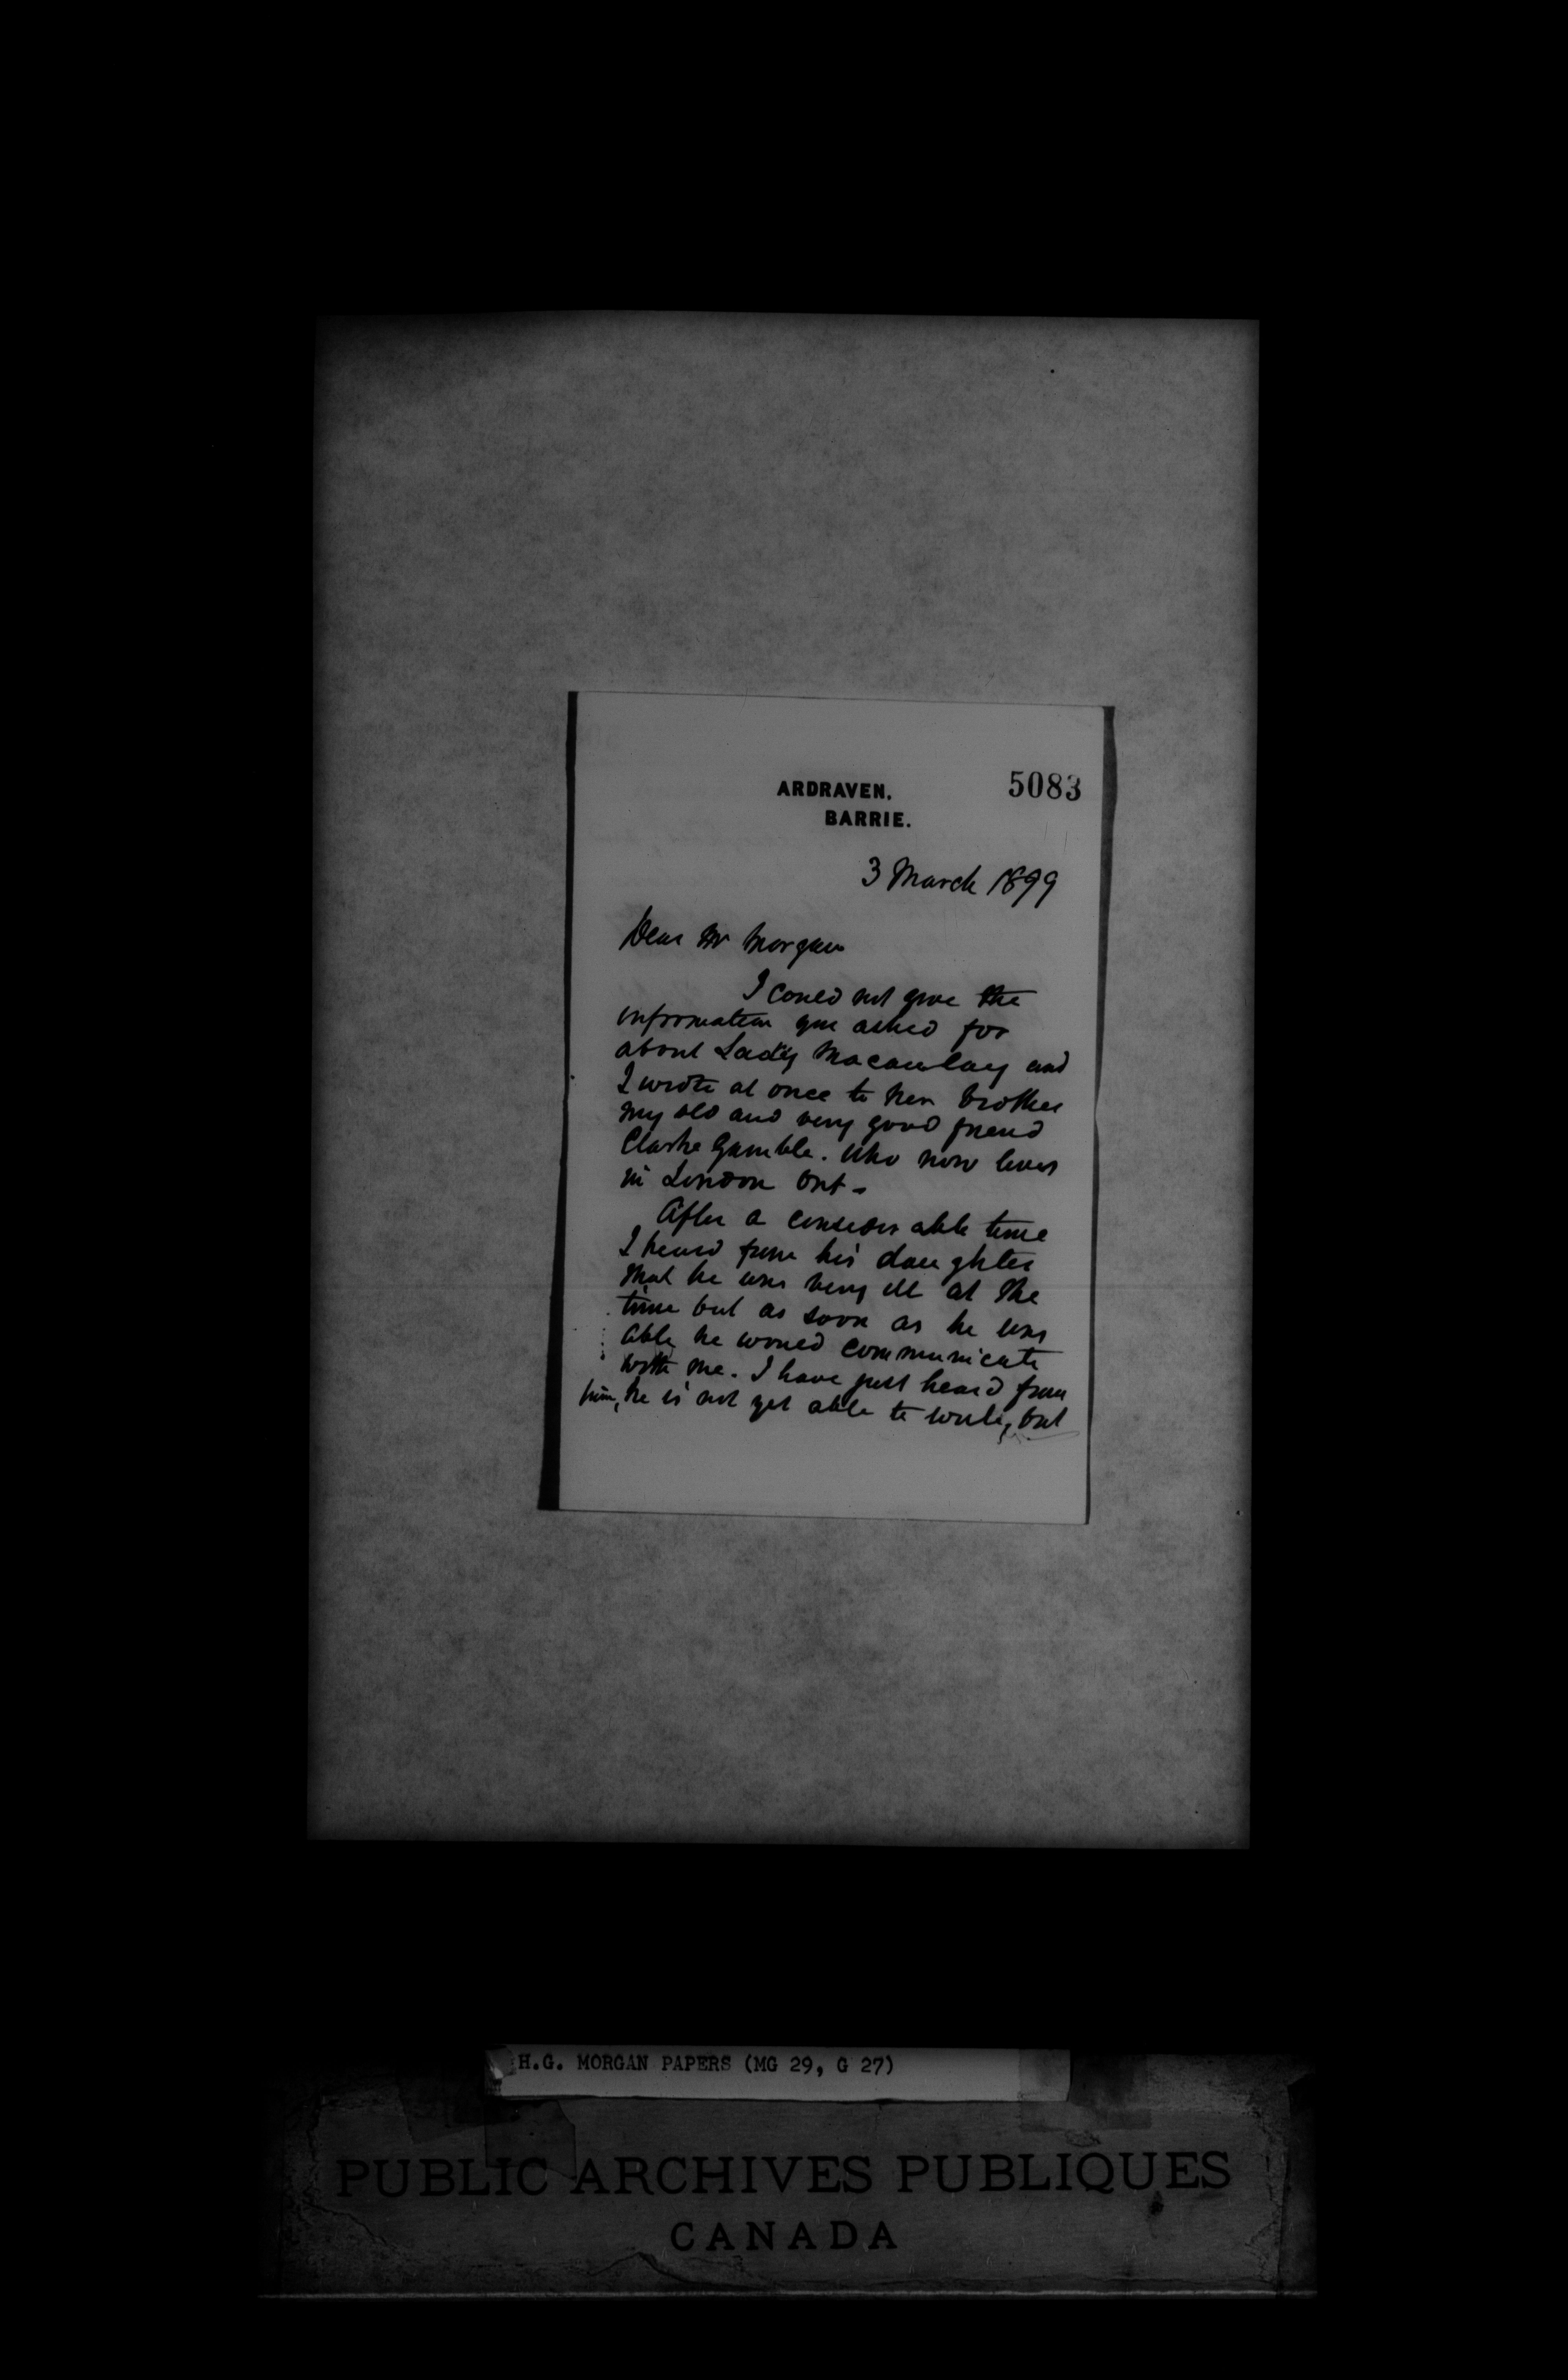 ARDRAVEN.
BARRIE.
5083
3 March 1899
Dear Mr Morgan
I could not give the
information you asked for
about Lady Macaulay and
I wrote at once to her brother
my old and very good friend
Clarke Gamble. Who now lives
in London Ont -
After a considerable time
I heard from his daughter
that he was very ill at the
time but as soon as he was
able he would communicate
with me. I have just heard from
him, he is not yet able to write, but
H.G. MORGAN PAPERS (MG 29, G 27)
PUBLIC ARCHIVES PUBLIQUES
CANADA